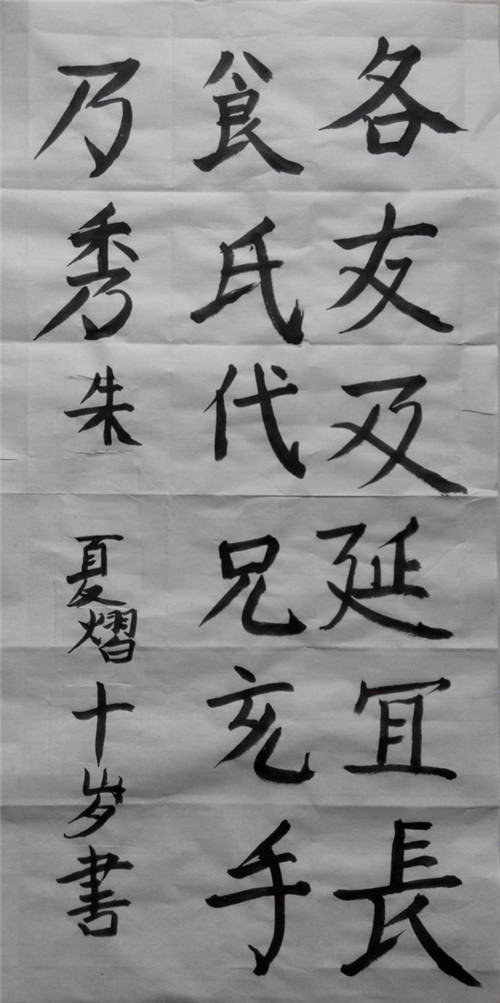 各友及延冝長
食氏代兄充手
乃秀朱
夏熠十岁書